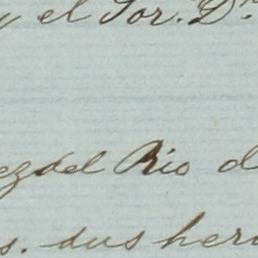 y el Sor. Dn.
ez del Rio d
s. sus her